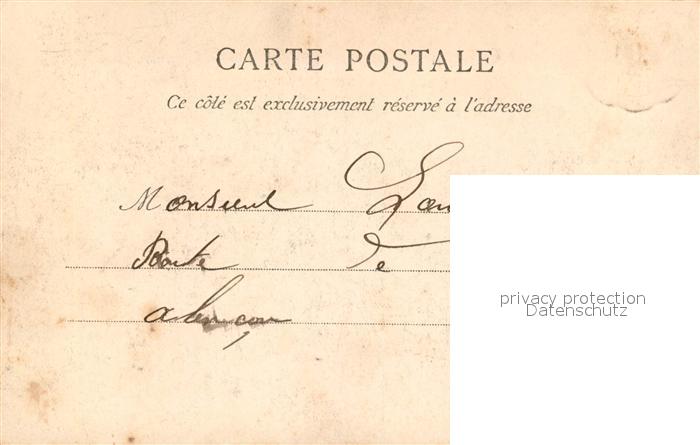 CARTE POSTALE
Ce côté est exclusivement réservé à l'adresse
Monsieur
Route de
alençon
privacy protection
Datenschutz